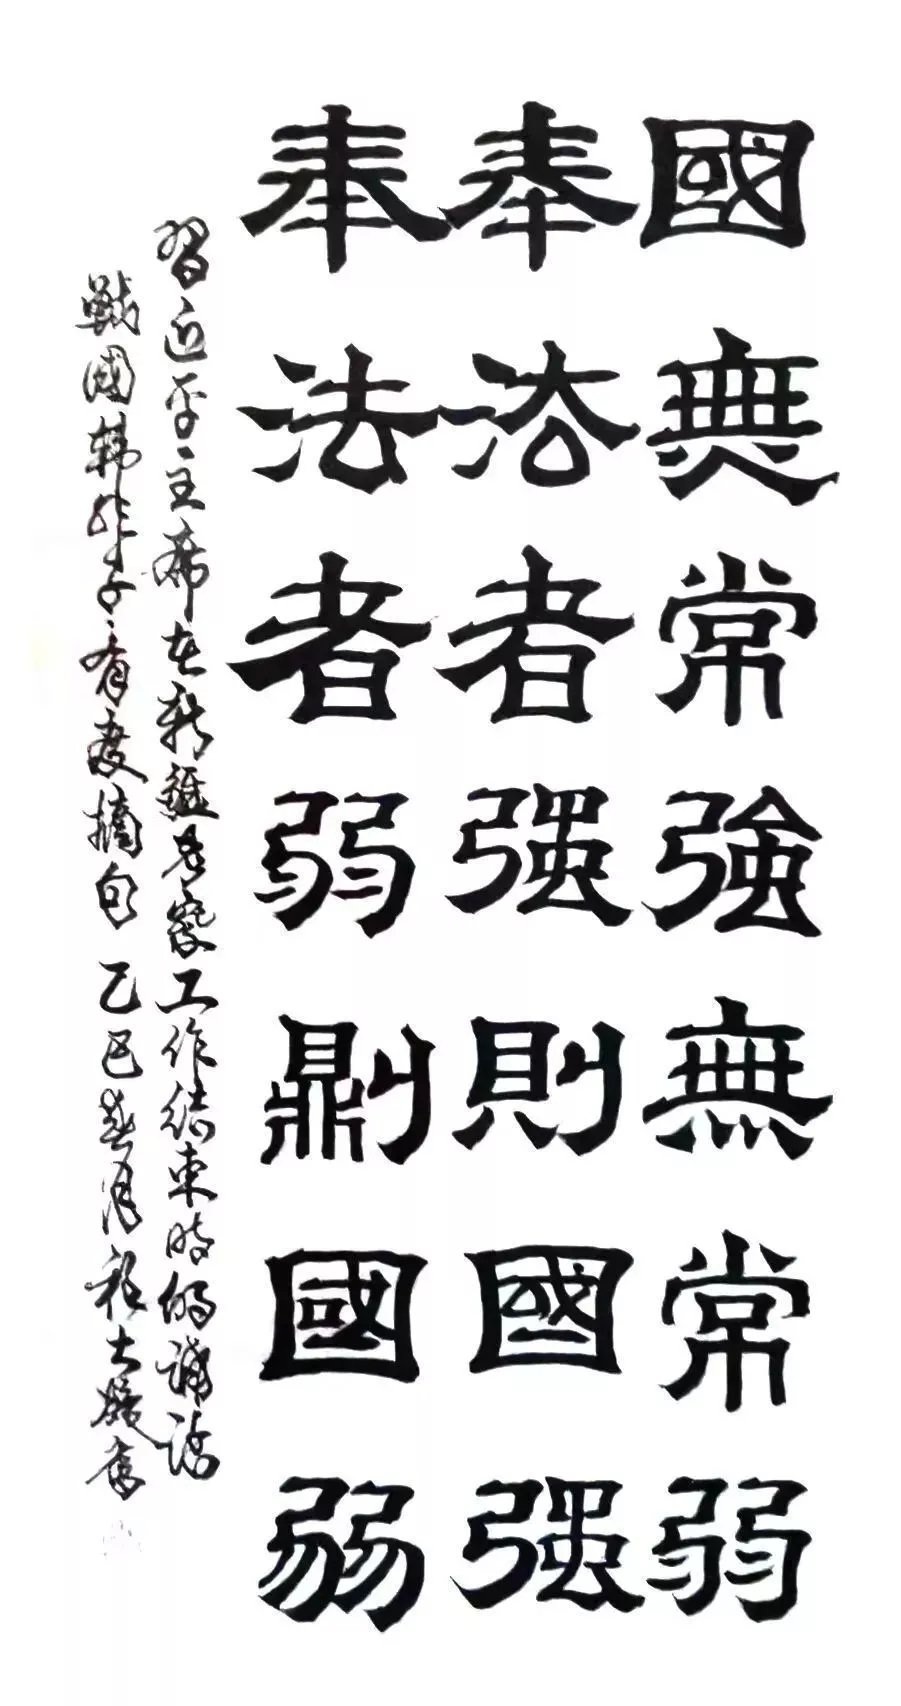 國無常強無常弱
奉法者强則國强
奉法者弱則國弱
習近平主席在新疆考察工作結束時的講話
戰國韓非子有度摘句 乙巳春月 大 書